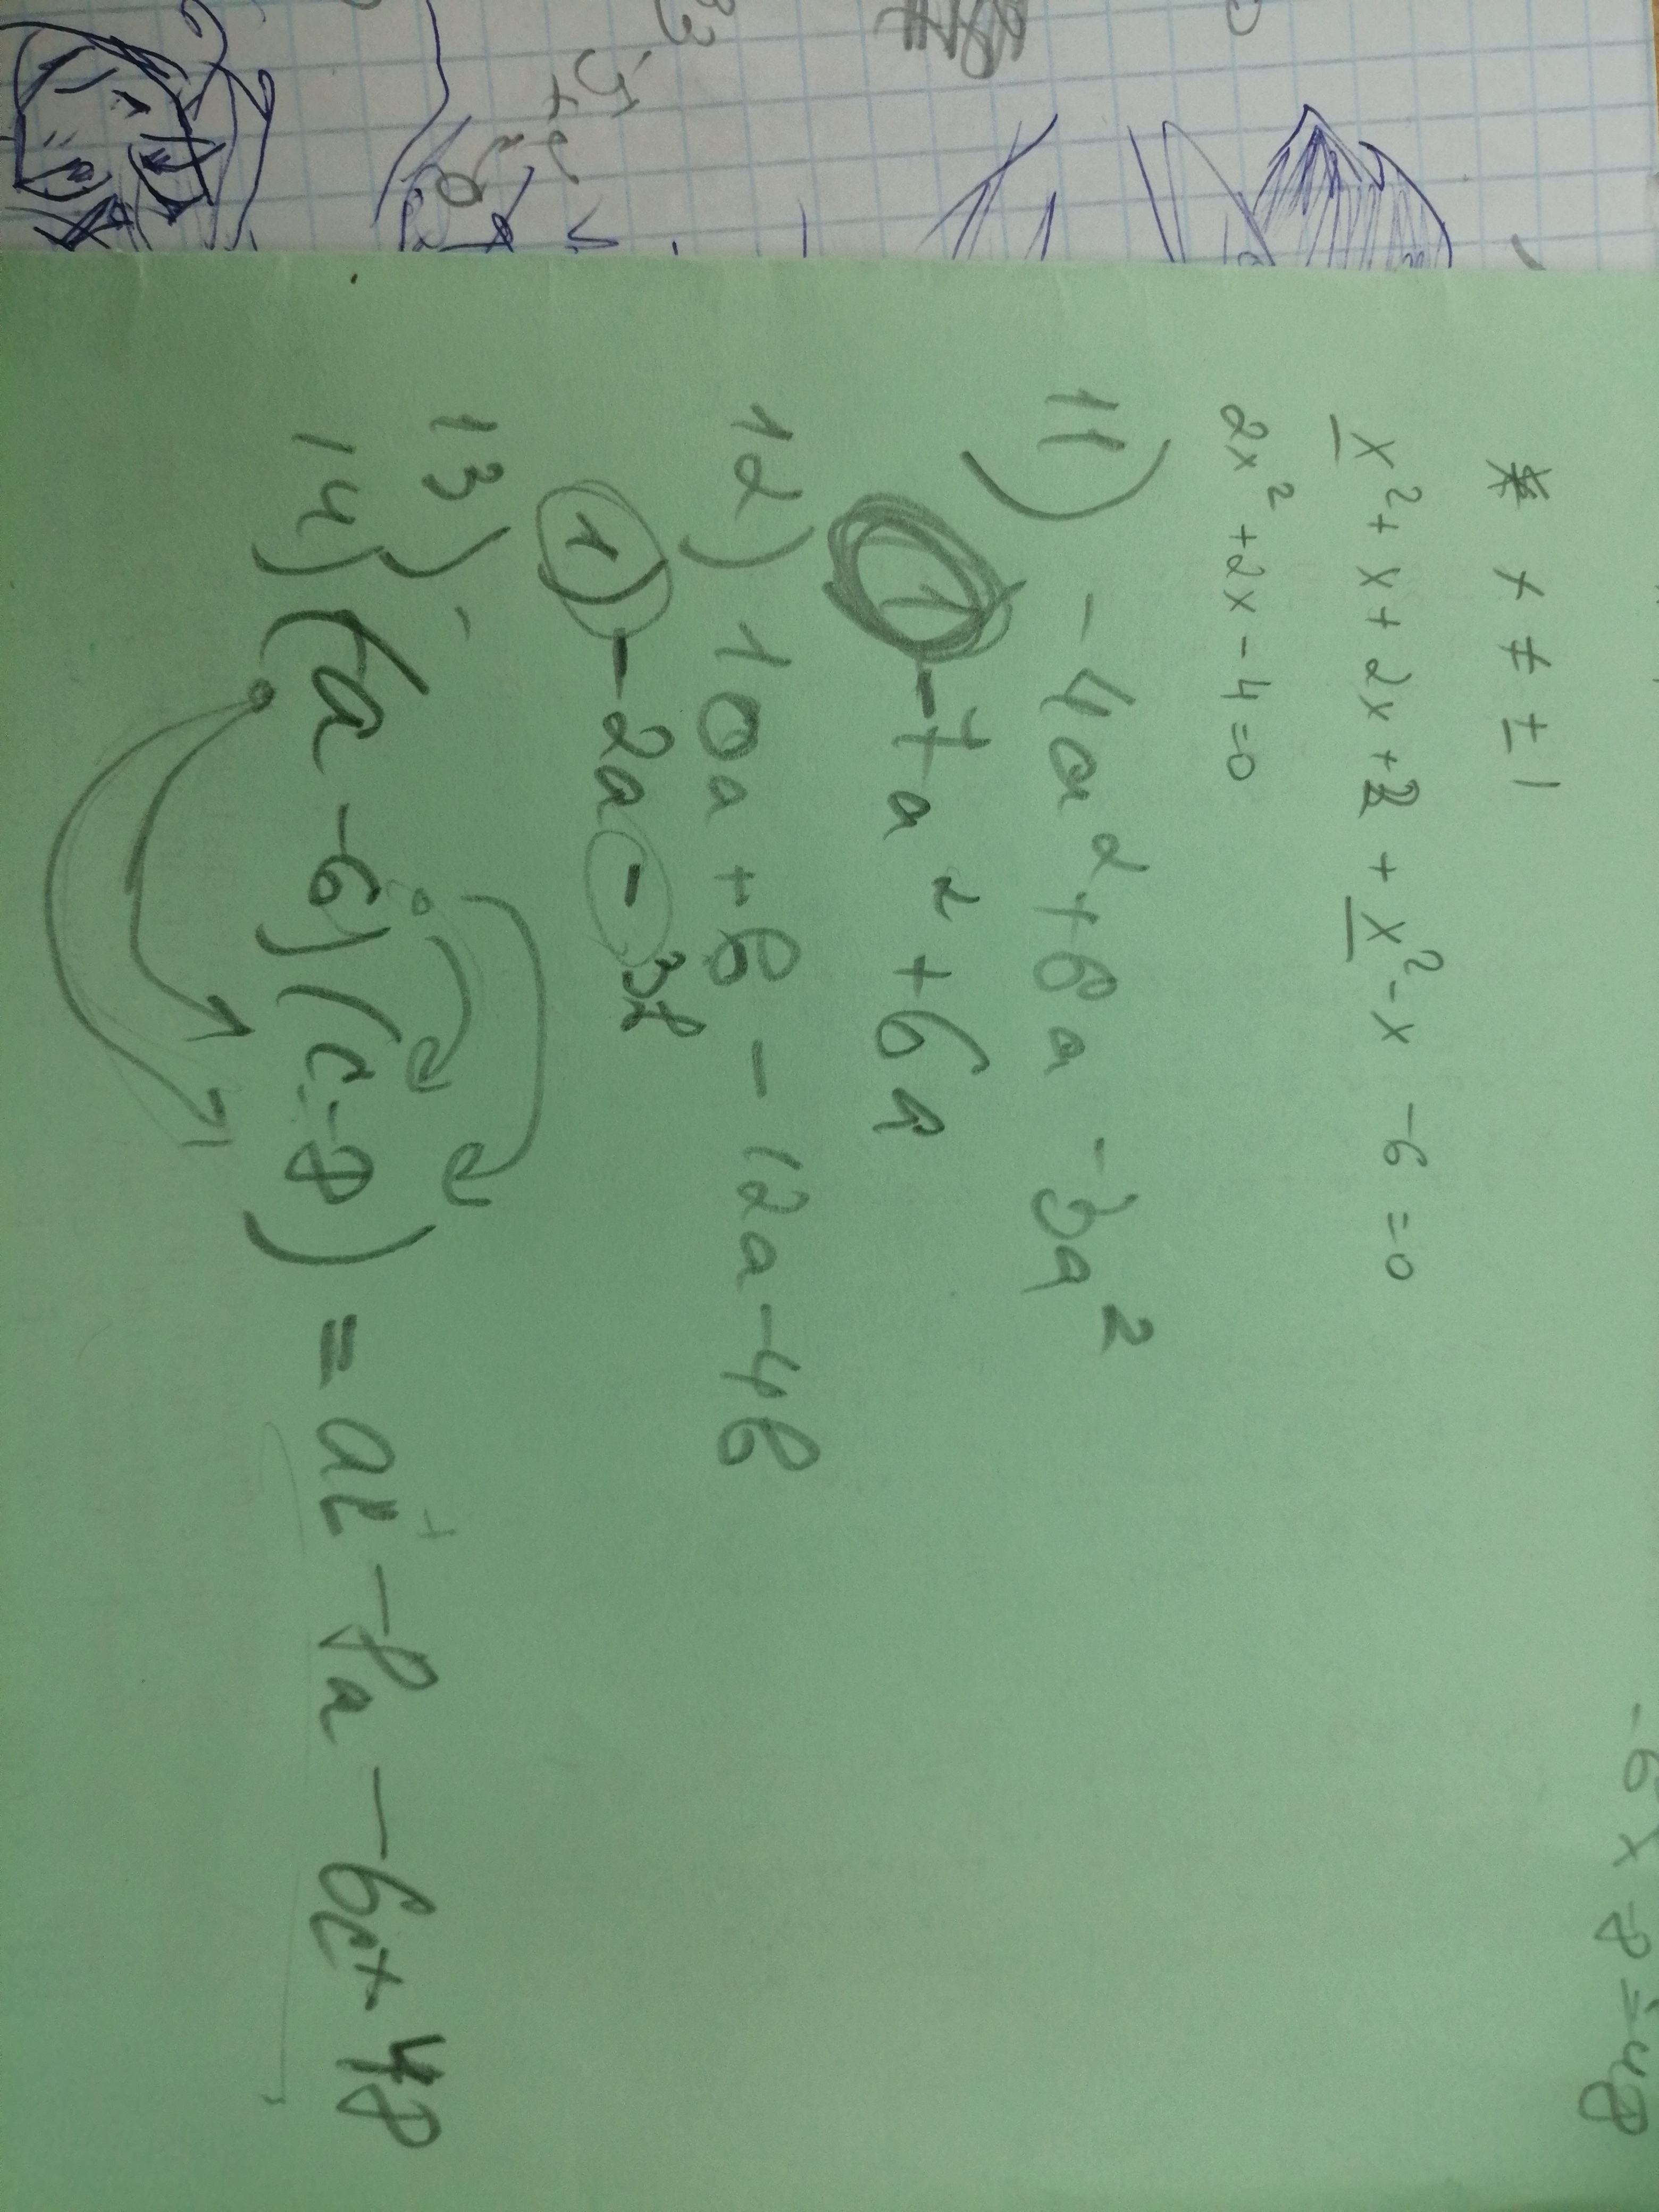 x ≠ ±1
x² + x + 2x + 2 + x² - x - 6 = 0
2x² + 2x - 4 = 0
11) - 4a² + 6a - 3a²
- 7a² + 6a
12) 10a + в - 12a - 4в
1) - 2a - 3в
13) -
14) (a - 6)(c - 8) = ac - 8a - 6c + 48
- 6 x - 8 = 48